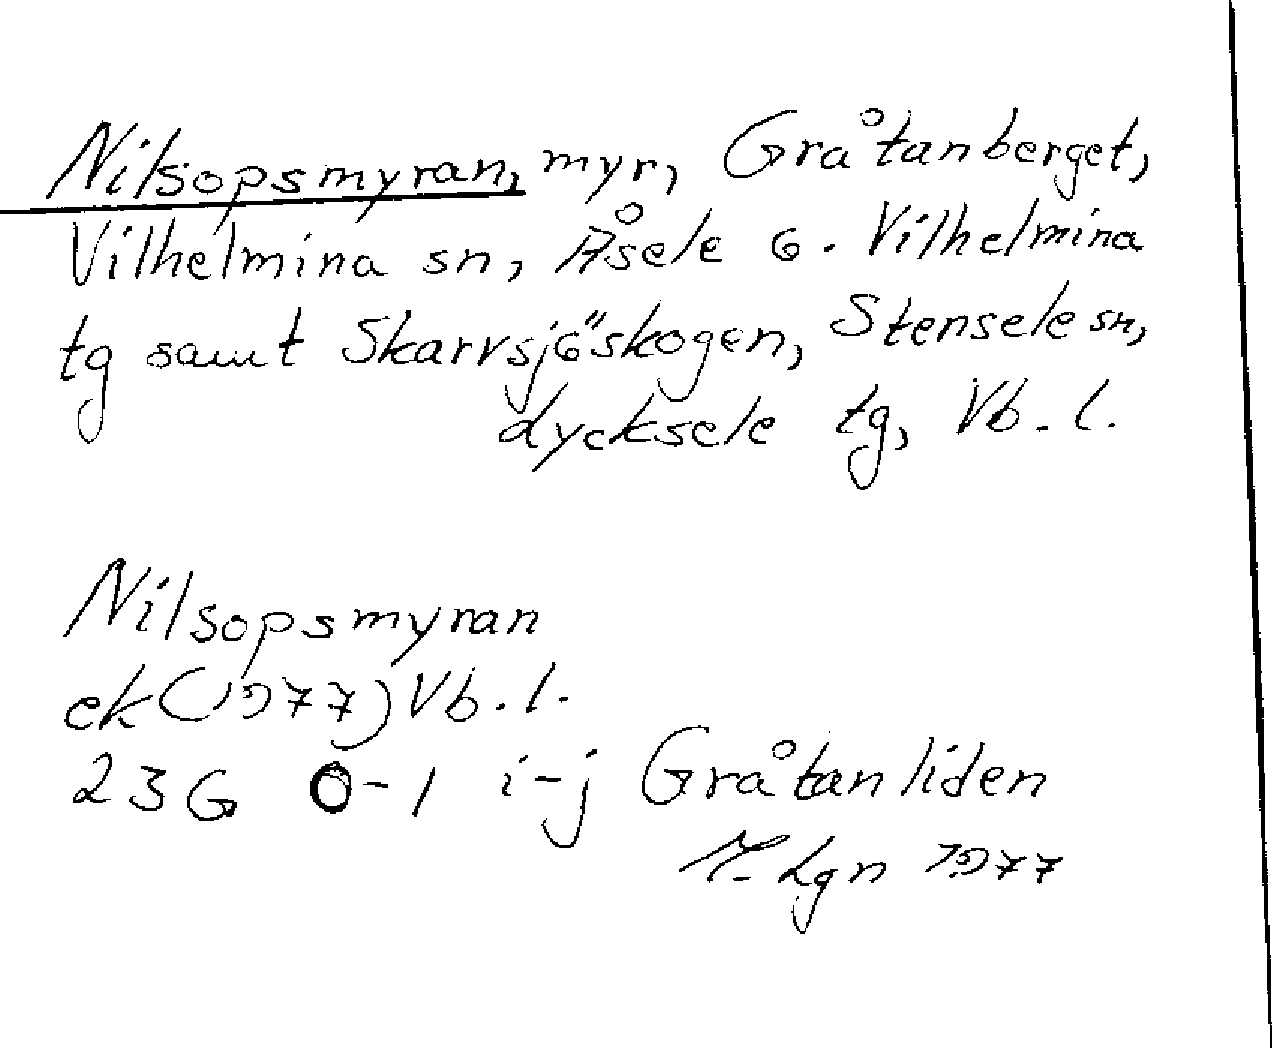 Nilsopsmyran, myr, Gråtanberget,
Vilhelmina sn, Åsele o. Vilhelmina
tg samt Skarvsjöskogen, Stensele sn,
Lycksele tg, Vb. l.
Nilsopsmyran
ek (1977) Vb. l.
23G 0-1 i-j Gråtanliden
Lgn 1977